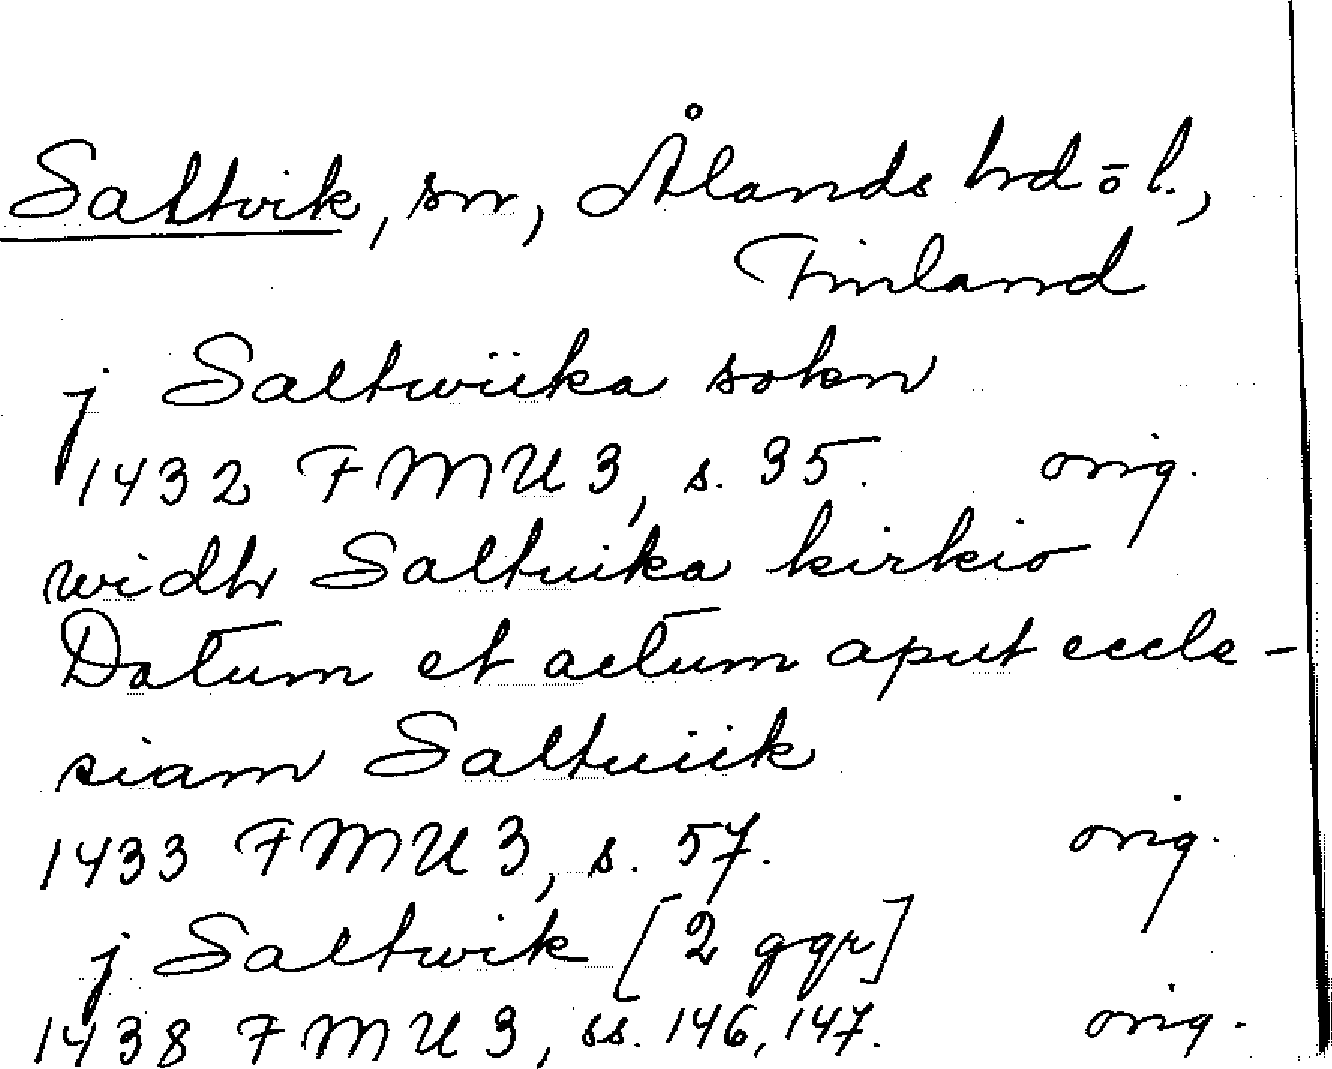 Saltvik, sn, Ålands hd o l.,
Finland
j Saltwiika sokn
1432 FMU 3, s. 35. orig.
widh Saltuika kirkio
Datum et actum aput eccle-
siam Saltuiik
1433 FMU 3, s. 57. orig.
j Saltwik [2 ggr]
1438 FMU 3, ss. 146, 147. orig.